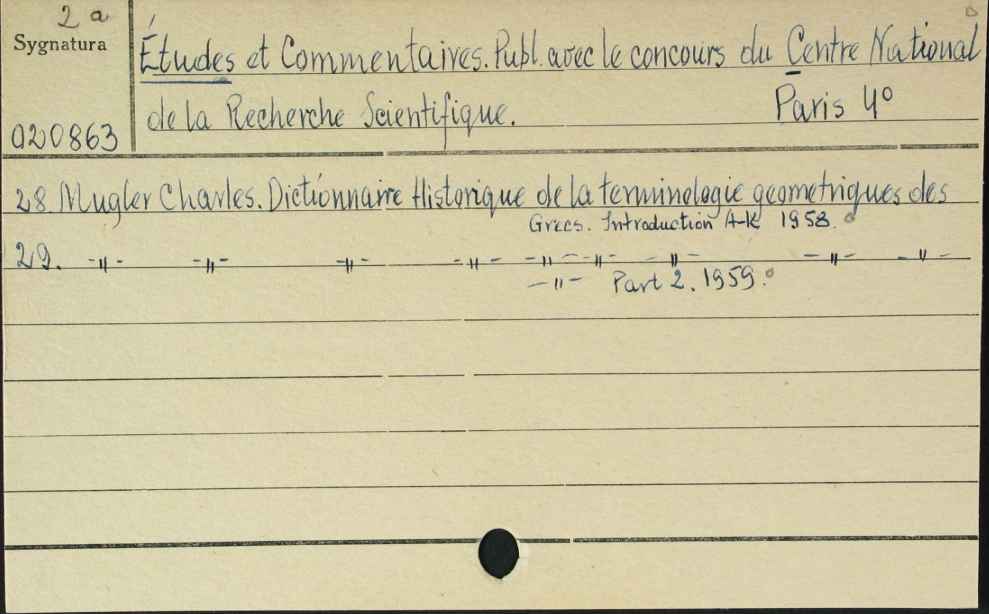 2a
Sygnatura
020863
Études et Commentaires. Publ. avec le concours du Centre National
de la Recherche Scientifique. Paris 4°
28. Mugler Charles. Dictionnaire Historique de la terminologie geometriques des
Grecs. Introduction A-K 1958.
29. -"- -"- -"- -"- -"- -"- -"- -"- -"-
-"- Part 2. 1959.